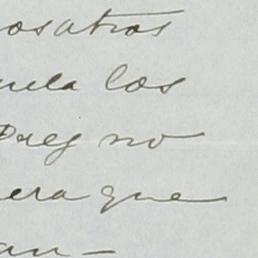 osatros
uela los
Preg no
era que
an-